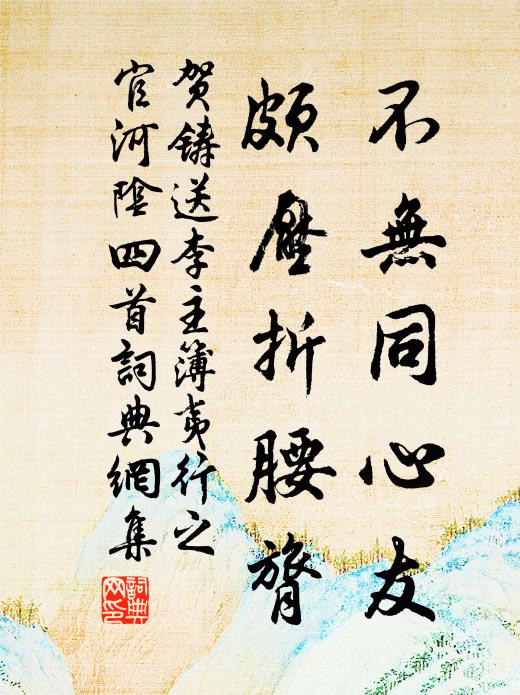 不無同心友
頗壓折腰膂
賀鑄送李主簿夷行之
官河陰四首詞典網集
詞典
网印